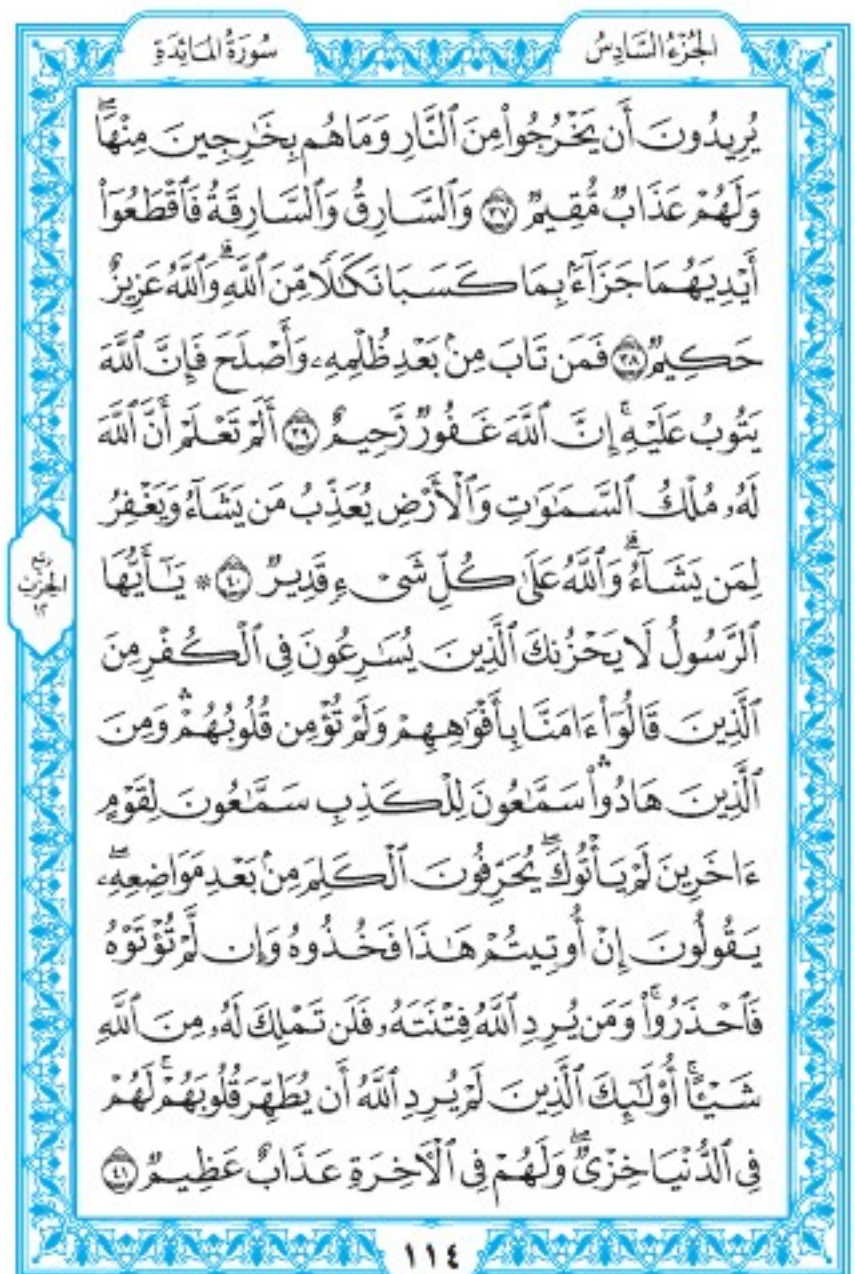 الجُزْءُ السَّادِسُ
سُورَةُ المَائِدَةِ
يُرِيدُونَ أَن يَخْرُجُوا۟ مِنَ ٱلنَّارِ وَمَا هُم بِخَـٰرِجِينَ مِنْهَاۖ
وَلَهُمْ عَذَابٌ مُّقِيمٌ ٣٧ وَٱلسَّارِقُ وَٱلسَّارِقَةُ فَٱقْطَعُوٓا۟
أَيْدِيَهُمَا جَزَآءَۢ بِمَا كَسَبَا نَكَـٰلًا مِّنَ ٱللَّهِۗ وَٱللَّهُ عَزِيزٌ
حَكِيمٌ ٣٨ فَمَن تَابَ مِنۢ بَعْدِ ظُلْمِهِۦ وَأَصْلَحَ فَإِنَّ ٱللَّهَ
يَتُوبُ عَلَيْهِۚ إِنَّ ٱللَّهَ غَفُورٌ رَّحِيمٌ ٣٩ أَلَمْ تَعْلَمْ أَنَّ ٱللَّهَ
لَهُۥ مُلْكُ ٱلسَّمَـٰوَٰتِ وَٱلْأَرْضِ يُعَذِّبُ مَن يَشَآءُ وَيَغْفِرُ
لِمَن يَشَآءُۗ وَٱللَّهُ عَلَىٰ كُلِّ شَىْءٍ قَدِيرٌ ٤٠ * يَـٰٓأَيُّهَا
ٱلرَّسُولُ لَا يَحْزُنكَ ٱلَّذِينَ يُسَـٰرِعُونَ فِى ٱلْكُفْرِ مِنَ
ٱلَّذِينَ قَالُوٓا۟ ءَامَنَّا بِأَفْوَٰهِهِمْ وَلَمْ تُؤْمِن قُلُوبُهُمْۛ وَمِنَ
ٱلَّذِينَ هَادُوا۟ۛ سَمَّـٰعُونَ لِلْكَذِبِ سَمَّـٰعُونَ لِقَوْمٍ
ءَاخَرِينَ لَمْ يَأْتُوكَۖ يُحَرِّفُونَ ٱلْكَلِمَ مِنۢ بَعْدِ مَوَاضِعِهِۦۖ
يَقُولُونَ إِنْ أُوتِيتُمْ هَـٰذَا فَخُذُوهُ وَإِن لَّمْ تُؤْتَوْهُ
فَٱحْذَرُوا۟ۚ وَمَن يُرِدِ ٱللَّهُ فِتْنَتَهُۥ فَلَن تَمْلِكَ لَهُۥ مِنَ ٱللَّهِ
شَيْـًٔاۚ أُو۟لَـٰٓئِكَ ٱلَّذِينَ لَمْ يُرِدِ ٱللَّهُ أَن يُطَهِّرَ قُلُوبَهُمْۚ لَهُمْ
فِى ٱلدُّنْيَا خِزْىٌۖ وَلَهُمْ فِى ٱلْـَٔاخِرَةِ عَذَابٌ عَظِيمٌ ٤١
ربع
الحزب
١٢
١١٤